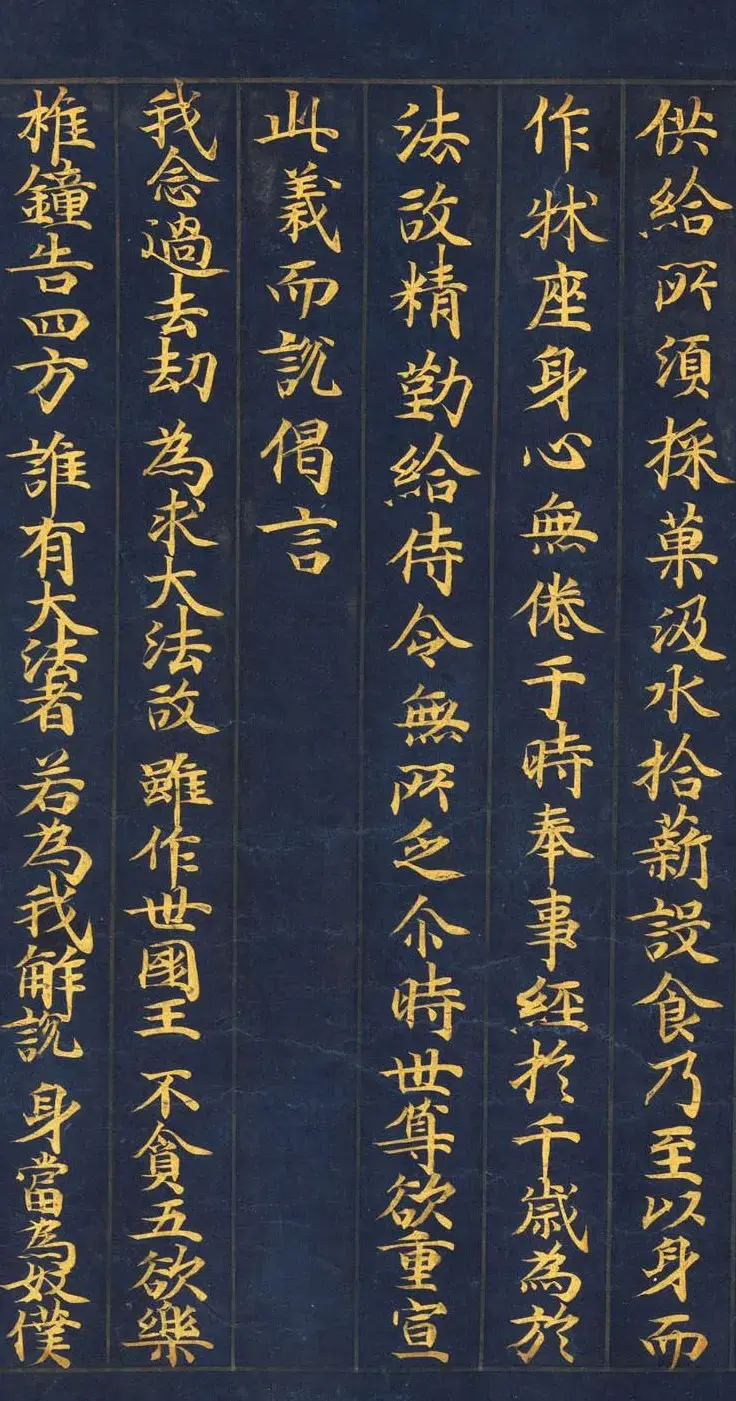 供給所須採菓汲水拾薪設食乃至以身而
作牀座身心無倦于時奉事經於千歲為於
法故精勤給侍令無所乏尒時世尊欲重宣
此義而說偈言
我念過去劫 為求大法故 雖作世國王 不貪五欲樂
椎鐘告四方 誰有大法者 若為我解說 身當為奴僕